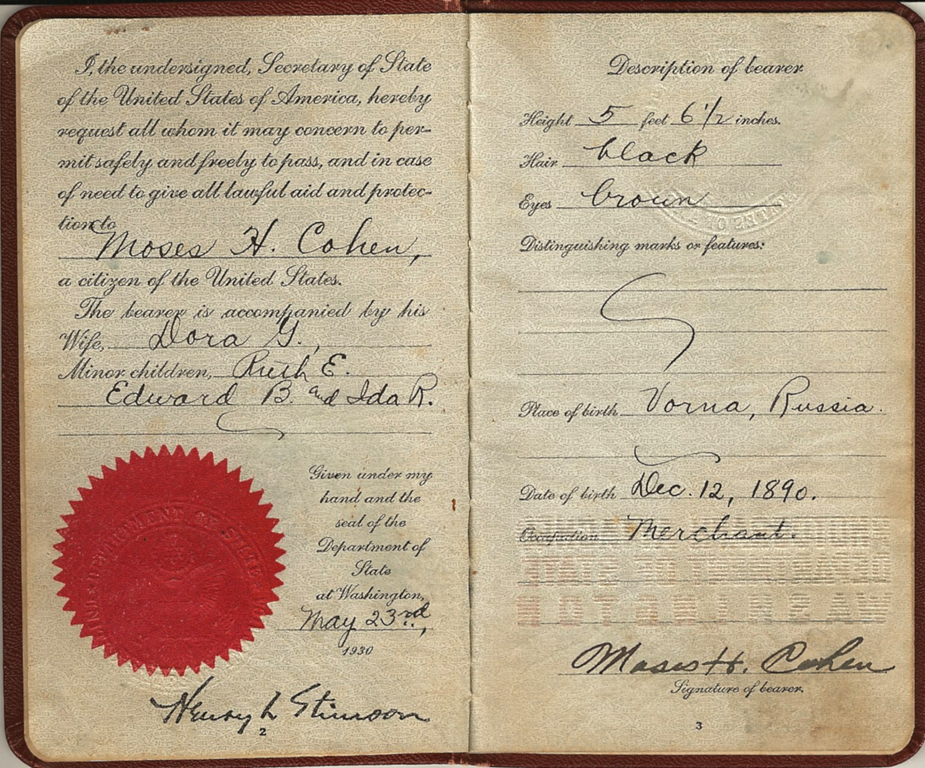 I, the undersigned, Secretary of State
of the United States of America, hereby
request all whom it may concern to per-
mit safely and freely to pass, and in case
of need to give all lawful aid and protec-
tion to
Moses H. Cohen,
a citizen of the United States.
The bearer is accompanied by his
Wife, Dora G.,
Minor children, Ruth E.
Edward B. and Ida R.
Given under my
hand and the
seal of the
Department of
State
at Washington,
May 23rd,
1930
Henry L Stimson
2
Description of bearer
Height 5 feet 6 1/2 inches.
Hair black
Eyes brown
Distinguishing marks or features:
Place of birth Vorna, Russia.
Date of birth Dec. 12, 1890.
Occupation Merchant.
Moses H. Cohen
Signature of bearer.
3